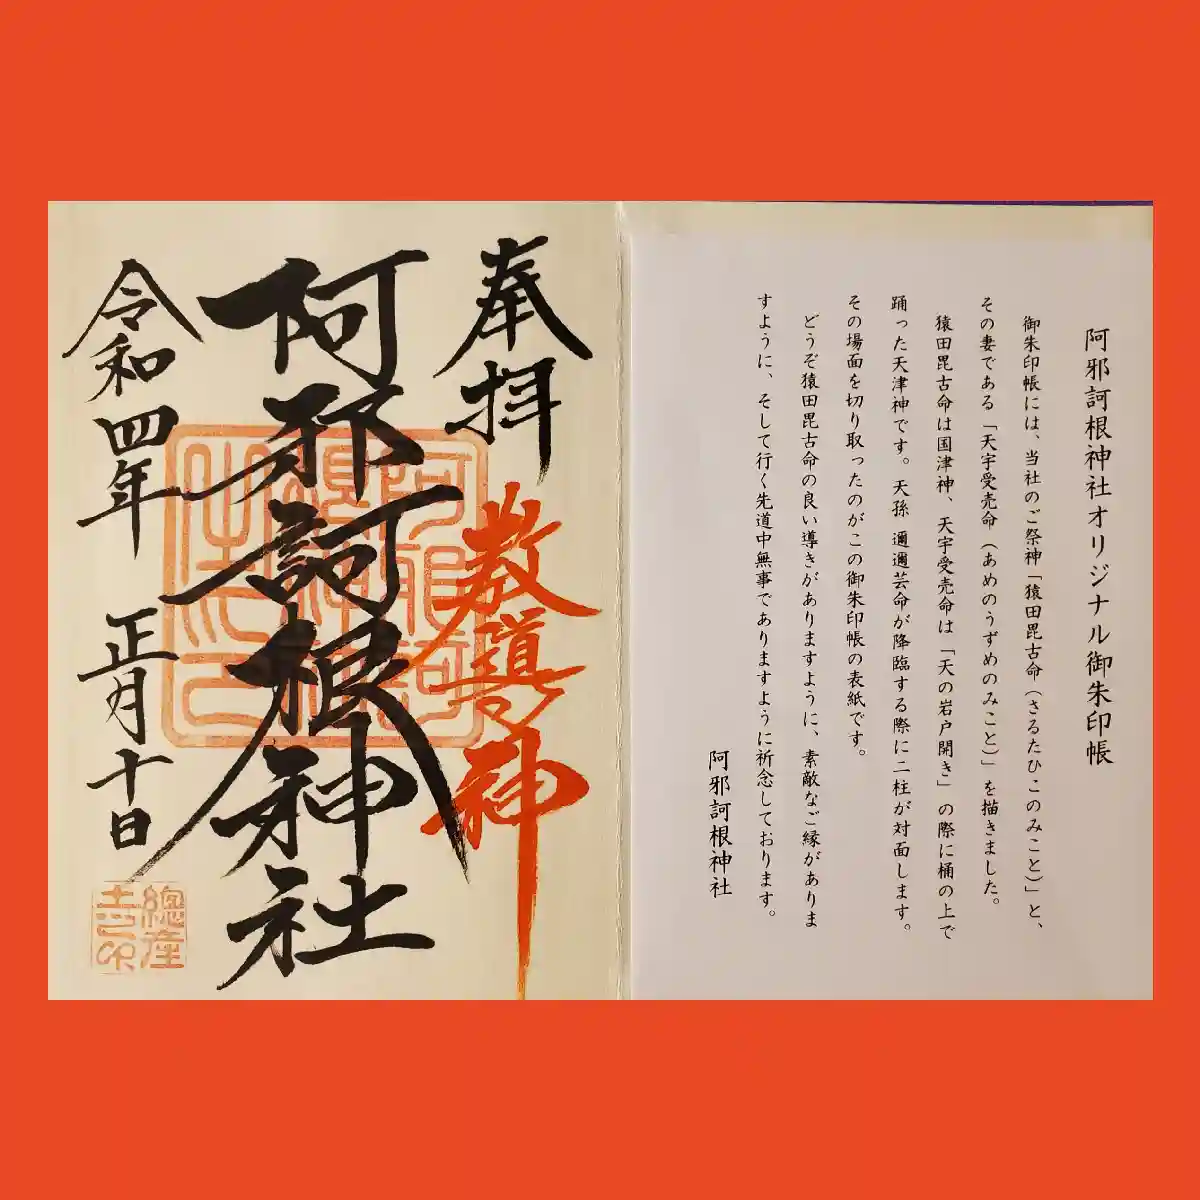 阿邪訶根神社オリジナル御朱印帳
御朱印帳には、当社のご祭神「猿田毘古命(さるたひこのみこと)」と、
その妻である「天宇受売命(あめのうずめのみこと)」を描きました。
猿田毘古命は国津神、天宇受売命は「天の岩戸開き」の際に桶の上で
踊った天津神です。天孫 邇邇芸命が降臨する際に二柱が対面します。
その場面を切り取ったのがこの御朱印帳の表紙です。
どうぞ猿田毘古命の良い導きがありますように、素敵なご縁がありま
すように、そして行く先道中無事でありますように祈念しております。
阿邪訶根神社
奉拝
教導の神
阿邪訶根神社
令和四年 正月十日